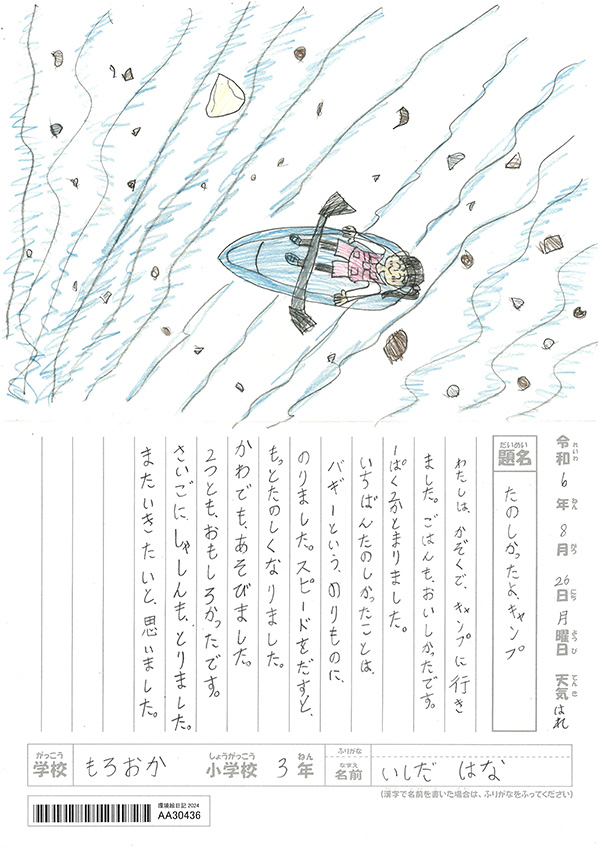 令和6年8月26日月曜日 天気はれ
れいわ ねん がつ にち ようび てんき
だいめい
題名
たのしかったよ、キャンプ
わたしは、かぞくで、キャンプに行き
ました。ごはんも、おいしかったです。
1ぱく2かとまりました。
いちばんたのしかったことは、
バギーという、のりものに、
のりました。スピードをだすと、
もっとたのしくなりました。
かわでも、あそびました。
2つとも、おもしろかったです。
さいごに、しゃしんも、とりました。
またいきたいと、思いました。
がっこう
学校
もろおか
しょうがっこう
小学校
3
ねん
年
ふりがな
なまえ
名前
いしだ はな
(漢字で名前を書いた場合は、ふりがなをふってください)
環境絵日記 2024
AA30436